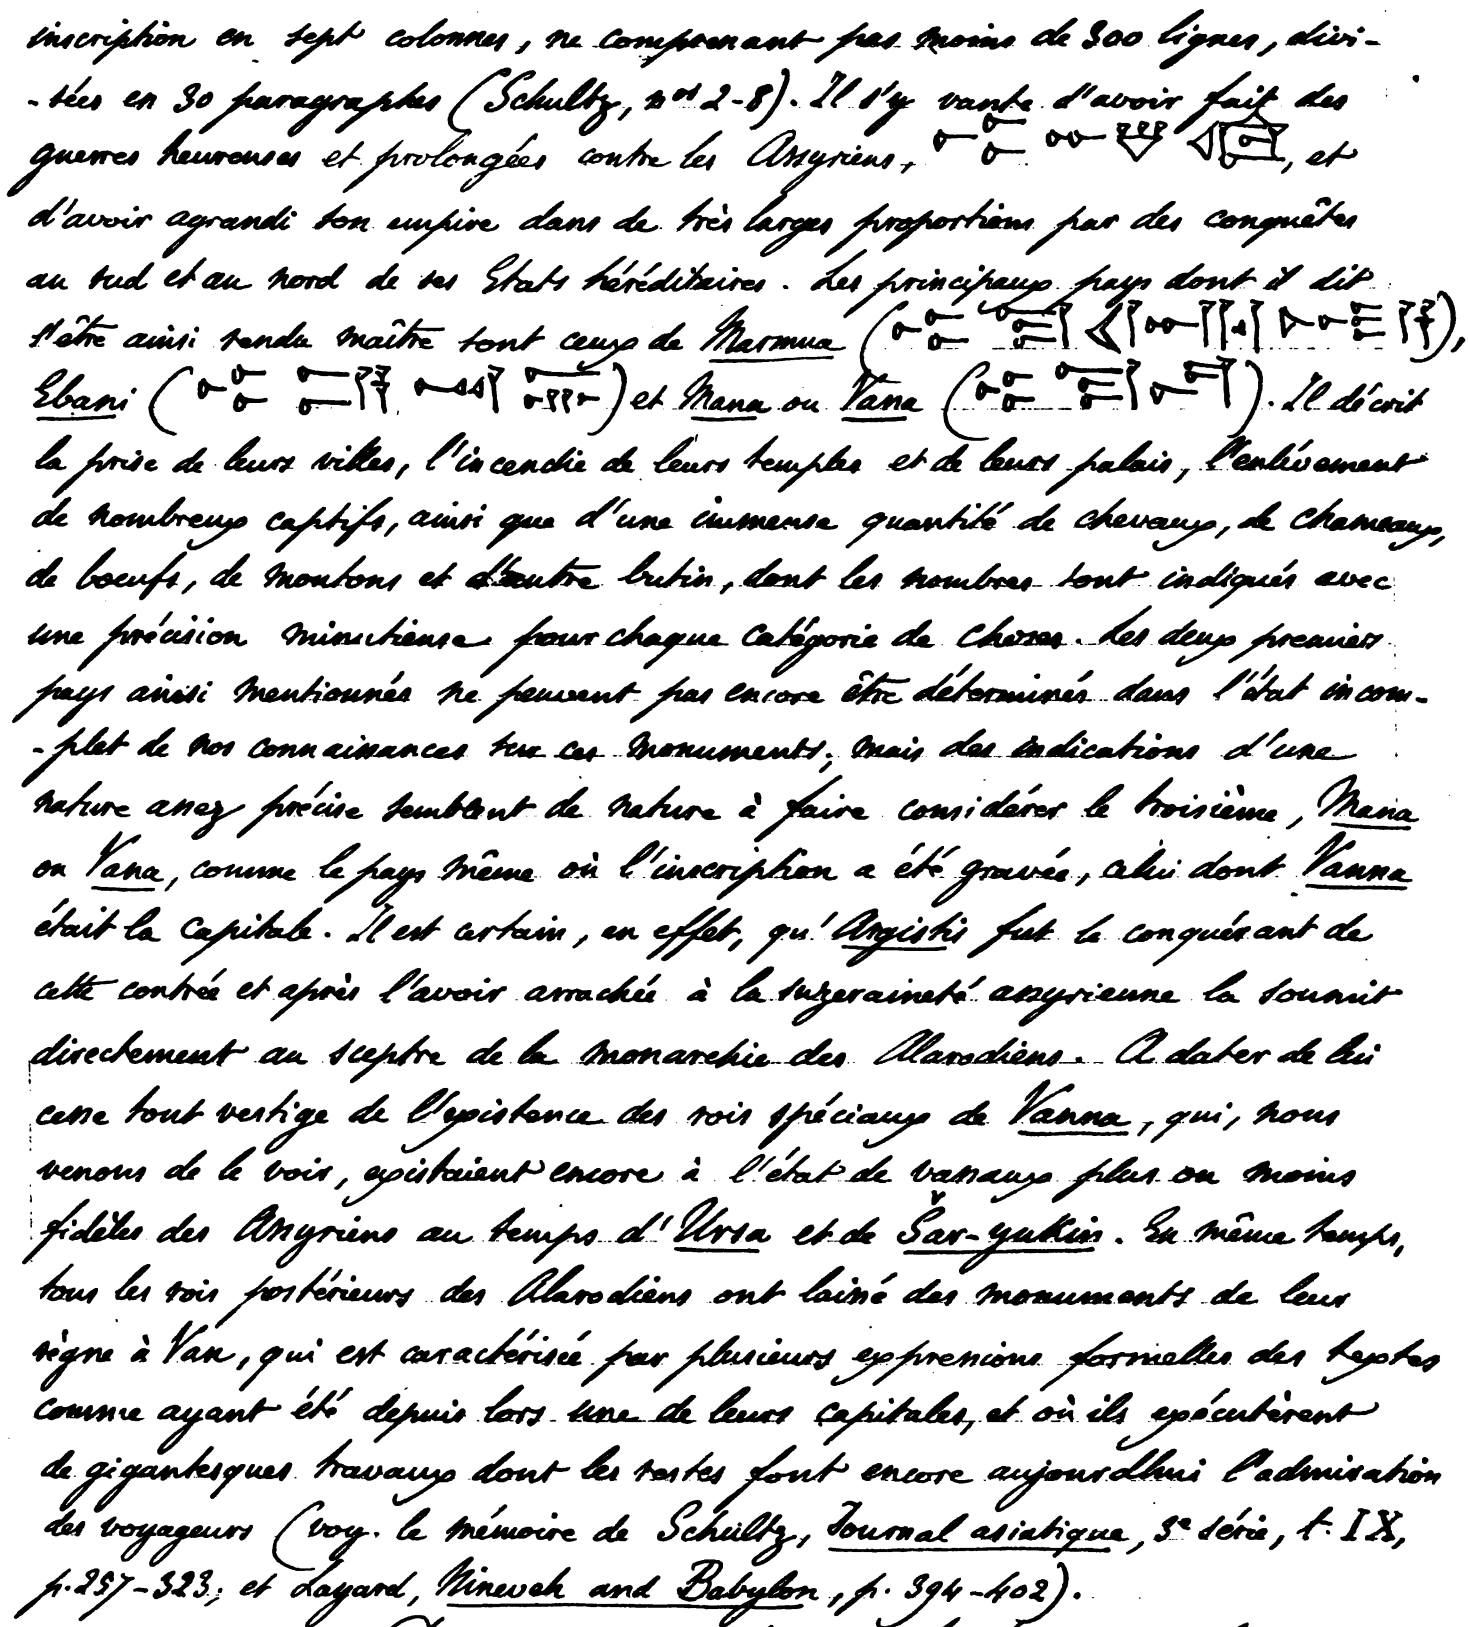 inscription en sept colonnes, ne comprenant pas moins de 300 lignes, divi-
-sées en 30 paragraphes (Schultz, nos 2-8). Il s'y vante d'avoir fait des
guerres heureuses et prolongées contre les Assyriens, , et
d'avoir agrandi son empire dans de très larges proportions par des conquêtes
au sud et au nord de ses Etats héréditaires. Les principaux pays dont il dit
s'être ainsi rendu maître sont ceux de Marmua ( ),
Ebani ( ) et Mana ou Vana ( ). Il décrit
la prise de leurs villes, l'incendie de leurs temples et de leurs palais, l'enlèvement
de nombreux captifs, ainsi que d'une immense quantité de chevaux, de chameaux,
de boeufs, de moutons et d'autre butin, dont les nombres sont indiqués avec
une précision minutieuse pour chaque catégorie de choses. Les deux premiers
pays ainsi mentionnés ne peuvent pas encore être déterminés dans l'état incom-
-plet de nos connaissances sur ces monuments; mais des indications d'une
nature assez précise semblent de nature à faire considérer le troisième, Mana
ou Vana, comme le pays même où l'inscription a été gravée, celui dont Vanna
était la capitale. Il est certain, en effet, qu'Argistis fut le conquérant de
cette contrée et après l'avoir arrachée à la suzeraineté assyrienne la soumit
directement au sceptre de la monarchie des Alarodiens. A dater de lui
cesse tout vestige de l'existence des rois spéciaux de Vanna, qui, nous
venons de le voir, existaient encore à l'état de vassaux plus ou moins
fidèles des Assyriens au temps d'Ursa et de Šar-yukin. En même temps,
tous les rois postérieurs des Alarodiens ont laissé des monuments de leur
règne à Van, qui est caractérisée par plusieurs expressions formelles des textes
comme ayant été depuis lors une de leurs capitales, et où ils exécutèrent
de gigantesques travaux dont les restes font encore aujourd'hui l'admiration
des voyageurs (voy. le mémoire de Schultz, Journal asiatique, 3e série, t. IX,
p. 257-323; et Layard, Nineveh and Babylon, p. 394-402).